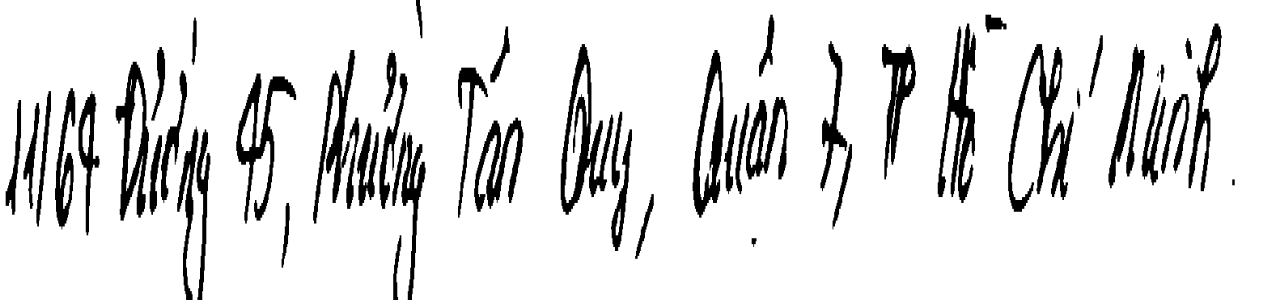 11169 Đường 45, Phường Tân Quy, Quận 7, TP Hồ Chí Minh.